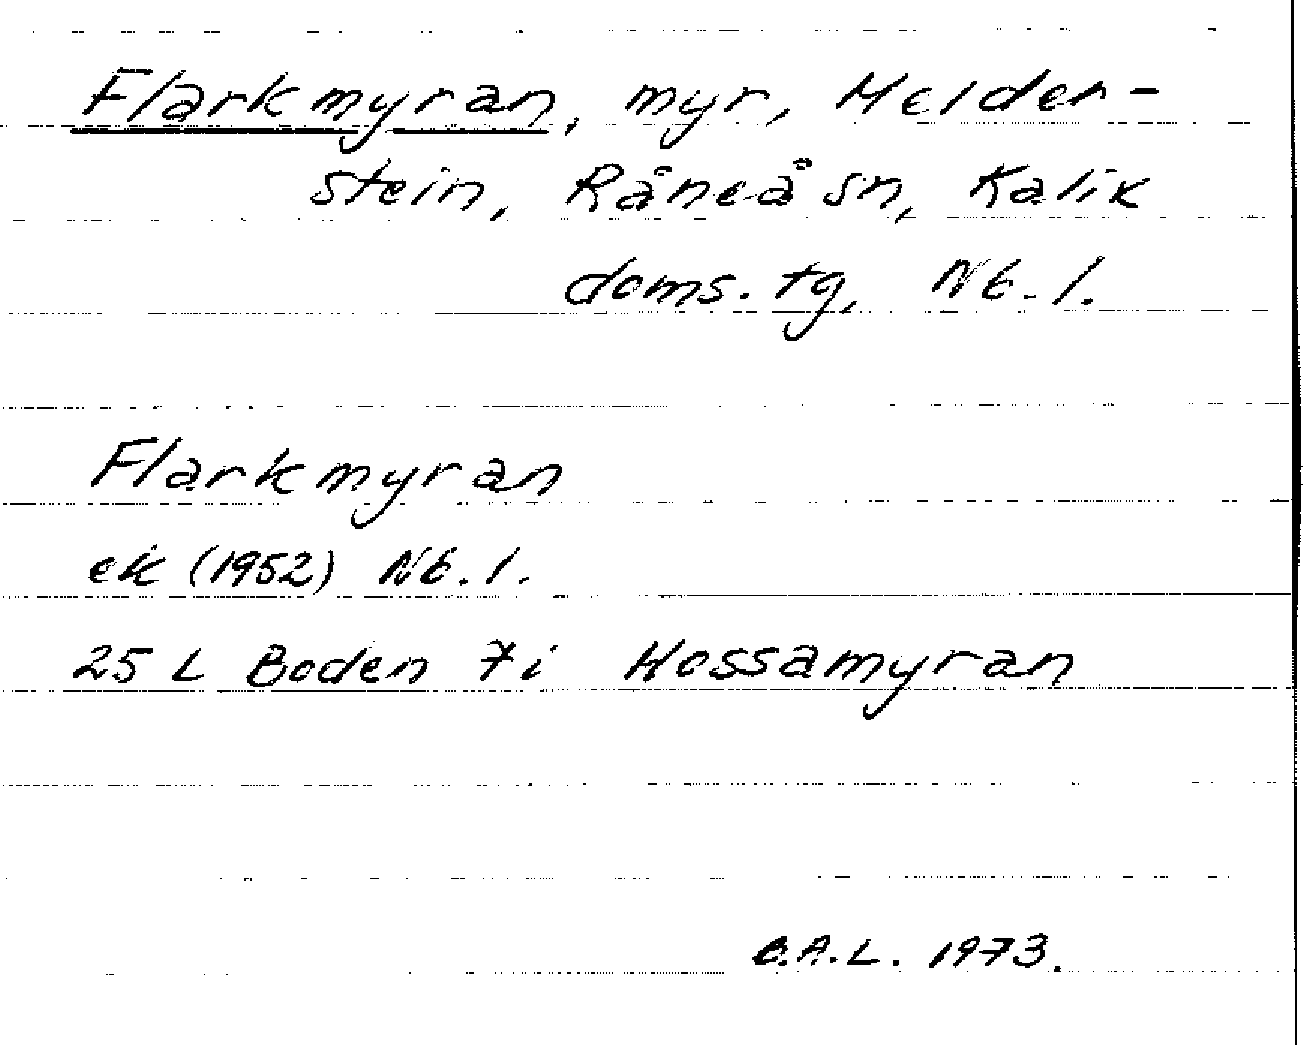 Flarkmyran, myr, Melden-
stein, Råneå sn, Kalix
doms. tg, Nb. l.
Flarkmyran
ek (1952) Nb. l.
25 L Boden 7 i Hossamyran
C.A.L. 1973.